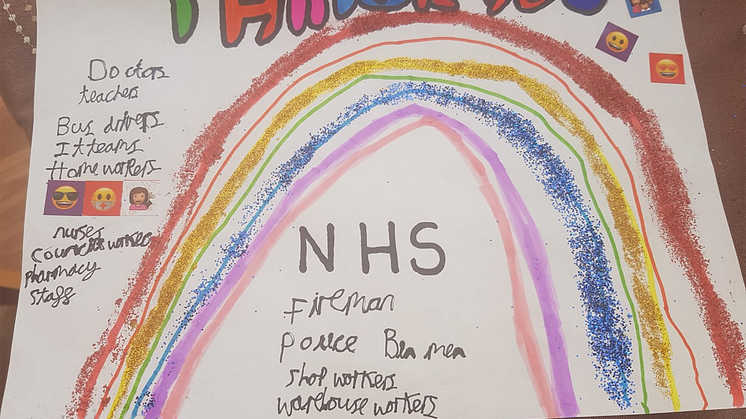 THANK YOU
Doctors
teachers
Bus drivers
It teams
Home workers
nurses
Councils workers
Pharmacy
Staff
NHS
Fireman
Police Bin men
Shop workers
warehouse workers